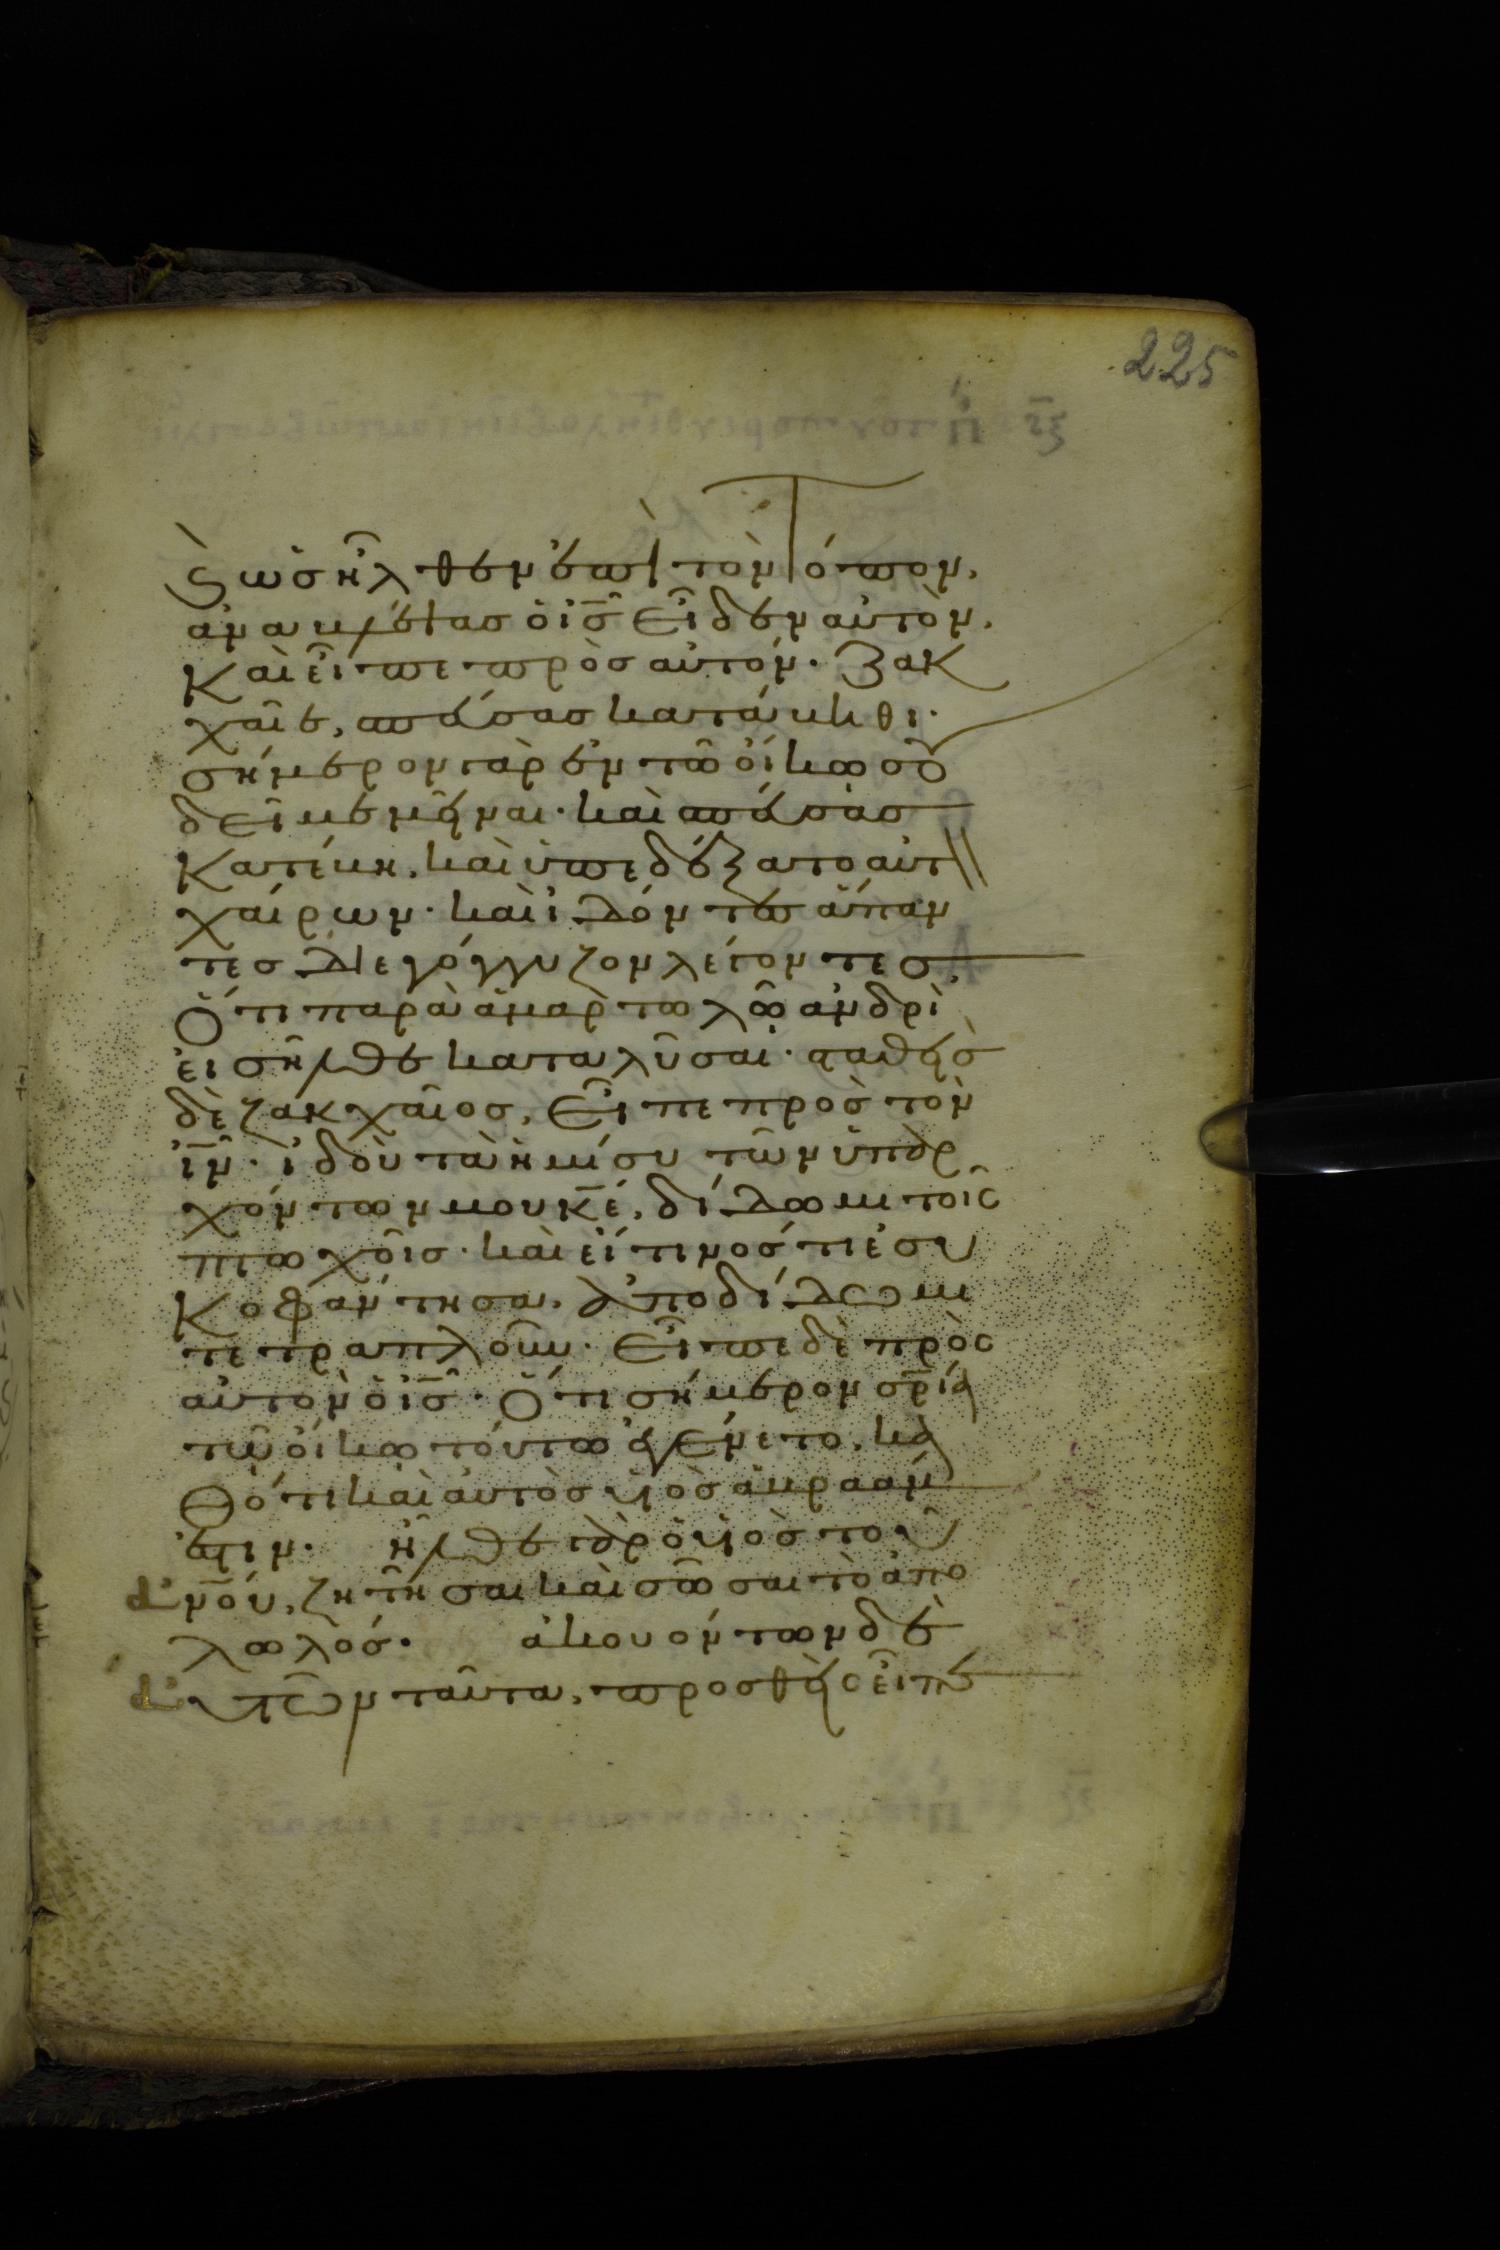 225
ὡς ἦλθεν ἐπὶ τὸν τόπον,
ἀναβλέψας ὁ ις εἶδεν αὐτὸν,
καὶ εἶπε πρὸς αὐτόν· Ζακ
χαῖε, σπεύσας κατάβηθι·
σήμερον γὰρ ἐν τῶ οἴκω σου
δεῖ με μεῖναι· καὶ σπεύσας
κατέβη, καὶ ὑπεδέξατο αὐτ
χαίρων· καὶ ἰδόντες ἅπαν
τες διεγόγγυζον λέγοντες,
Ὅτι παρὰ ἁμαρτωλῶ ἀνδρὶ
εἰσῆλθε καταλῦσαι· σταθεὶς
δὲ ζακχαῖος, εἶπε πρὸς τὸν
ιν· ἰδοὺ τὰ ἡμίσυ τῶν ὑπαρ
χόντων μου κε, δίδωμι τοῖς
πτωχοῖς· καὶ εἴ τινός τι ἐσυ
κοφάντησα, ἀποδίδωμι
τετραπλοῦν· εἶπε δὲ πρὸς
αὐτὸν ὁ ις· Ὅτι σήμερον σρία
τῶ οἴκω τούτω ἐγένετο, κα
θότι καὶ αὐτὸς υἱὸς ἀβραάμ
ἐστιν· ἦλθε γὰρ ὁ υἱὸς τοῦ
ἀνου, ζητῆσαι καὶ σῶσαι τὸ ἀπο
λωλός· ἀκουόντων δὲ
αὐτῶν ταῦτα, προσθεὶς εἶπε